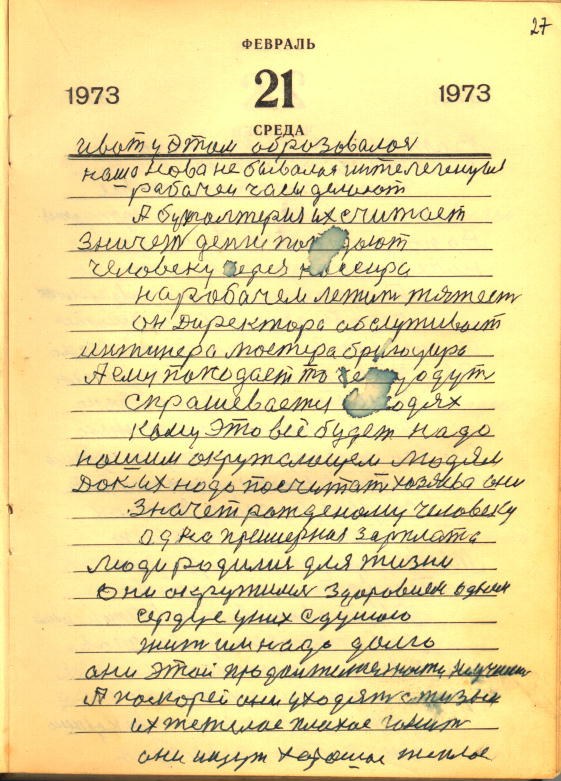 27
ФЕВРАЛЬ
1973 21 1973
СРЕДА
и вот у этом образовался
наша нова не бывалая
рабачеи часы делают
А бухгалтерия их считает
Значет денги
человеку
на рабачем лежит тяжест
он Директора обслуживает
инжинера мостера бригодира
Аему покодает то
спрашевается
кому это всё будет надо
нашим окружающем людям
Док их надо посчитат хозяева они
Значет рожденому человеку
одна примерная зарплата
люди родилия для жизни
Они окружилия здоровием одним
сердце у них с душою
жит им надо долго
они этой продолжителности
А поскорей они уходят с жизни
их тежелое плахое гонит
они ищут хорошае теплае